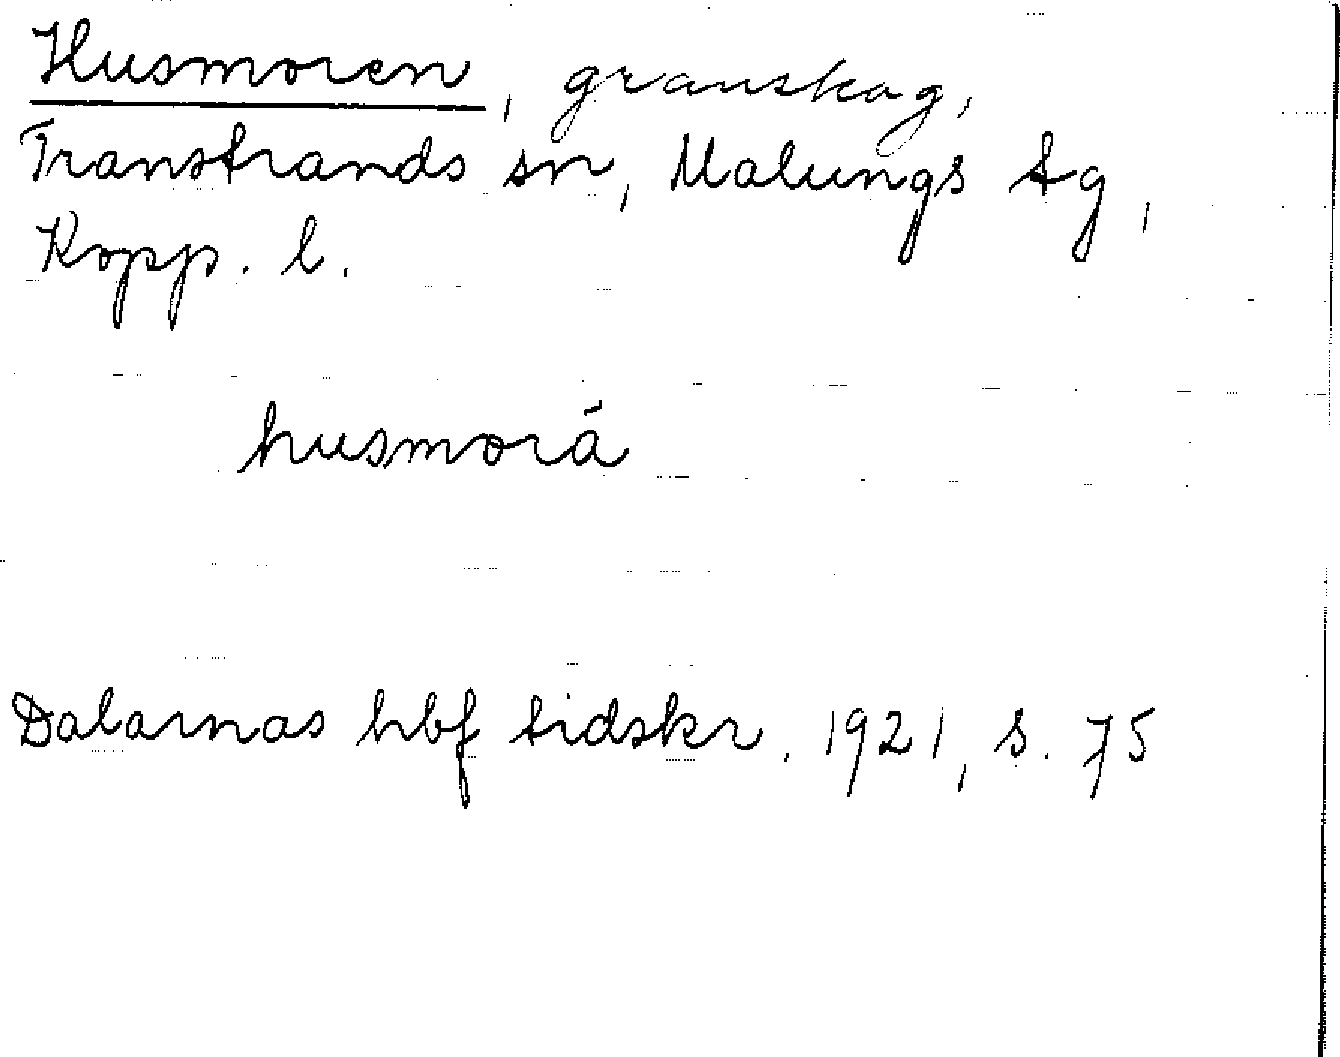 Husmoren, granskog,
Transtrands sn, Malungs tg,
Kopp. l.
husmorá
Dalarnas hbf tidskr. 1921, s. 75